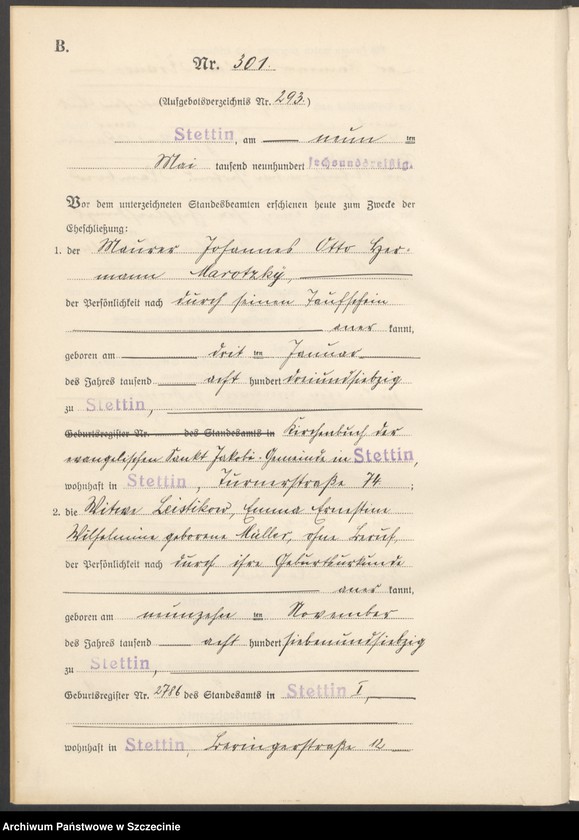 B.
Nr. 301.
(Aufgebotsverzeichnis Nr. 293.)
Stettin, am neun ten
Mai tausend neunhundert sechsunddreißig.
Vor dem unterzeichneten Standesbeamten erschienen heute zum Zwecke der
Eheschließung:
1. der Maurer Johannes Otto Her-
mann Marotzky,
der Persönlichkeit nach durch seinen Taufschein
aner kannt,
geboren am drit ten Januar
des Jahres tausend acht hundert dreiundsiebzig
zu Stettin,
Geburtsregister Nr. des Standesamts in Kirchenbuch der
evangelischen Sankt Jakobi-Gemeinde in Stettin,
wohnhaft in Stettin, Turnerstraße 74 ;
2. die Witwe Leistikow, Emma Ernestine
Wilhelmine geborene Müller, ohne Beruf,
der Persönlichkeit nach durch ihre Geburtsurkunde
aner kannt,
geboren am neunzehn ten November
des Jahres tausend acht hundert siebenundsiebzig
zu Stettin,
Geburtsregister Nr. 2786 des Standesamts in Stettin I,
wohnhaft in Stettin, Beringerstraße 12
Archiwum Państwowe w Szczecinie